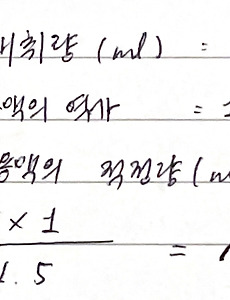 채취량 (ml) =
액의 역가 =
용액의 적정량 (m
× 1
1.5 =